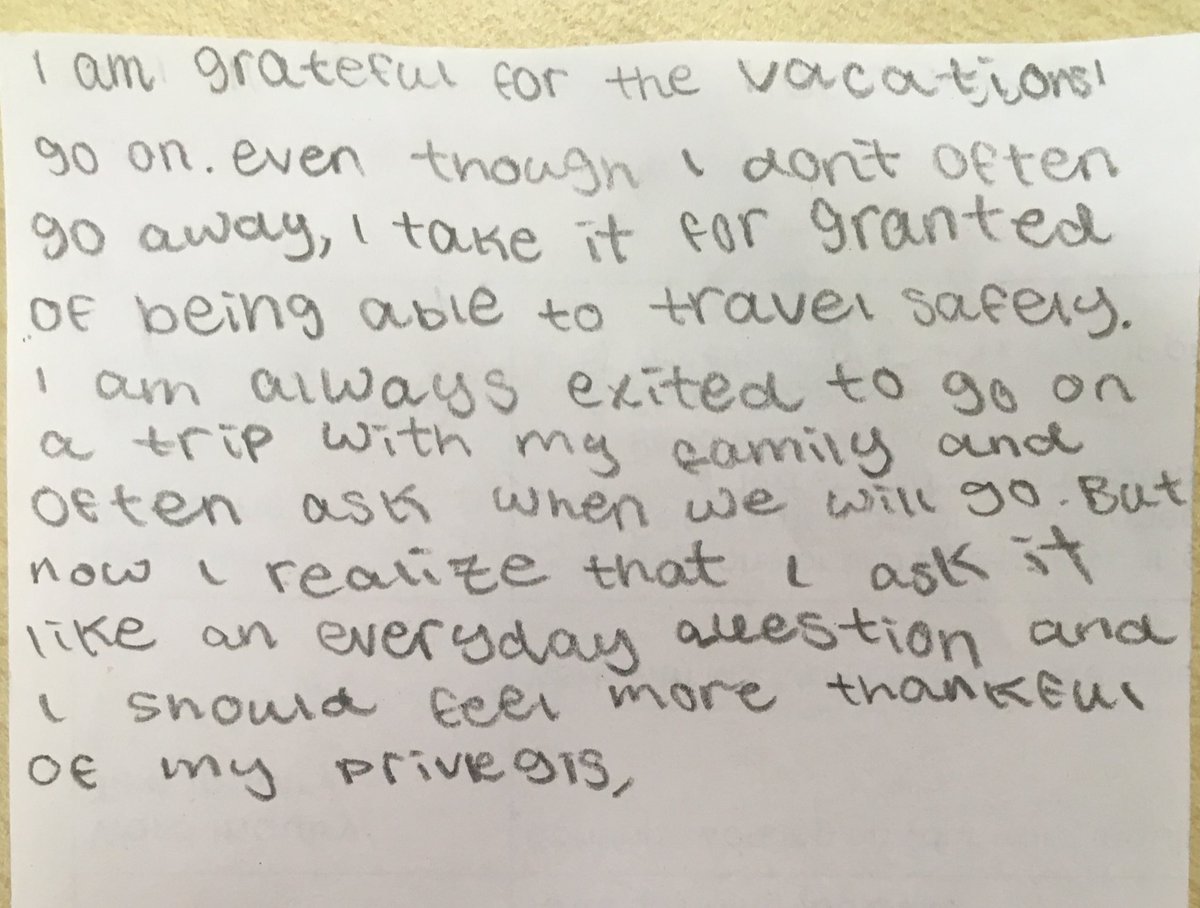 I am grateful for the vacations I
go on. even though I don't often
go away, I take it for granted
of being able to travel safely.
I am always exited to go on
a trip with my family and
often ask when we will go. But
now I realize that I ask it
like an everyday question and
I should feel more thankful
of my privlegis,